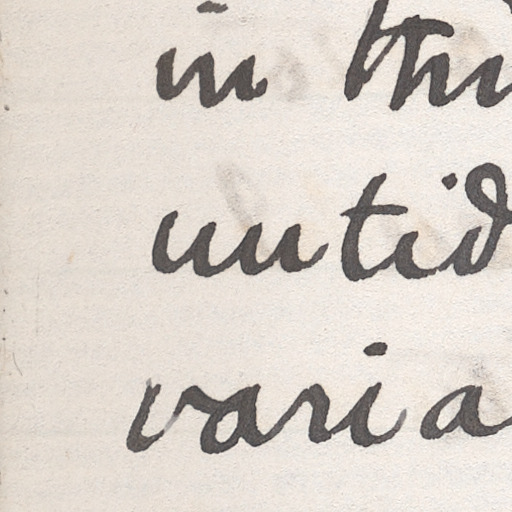 in thi
untid
varia